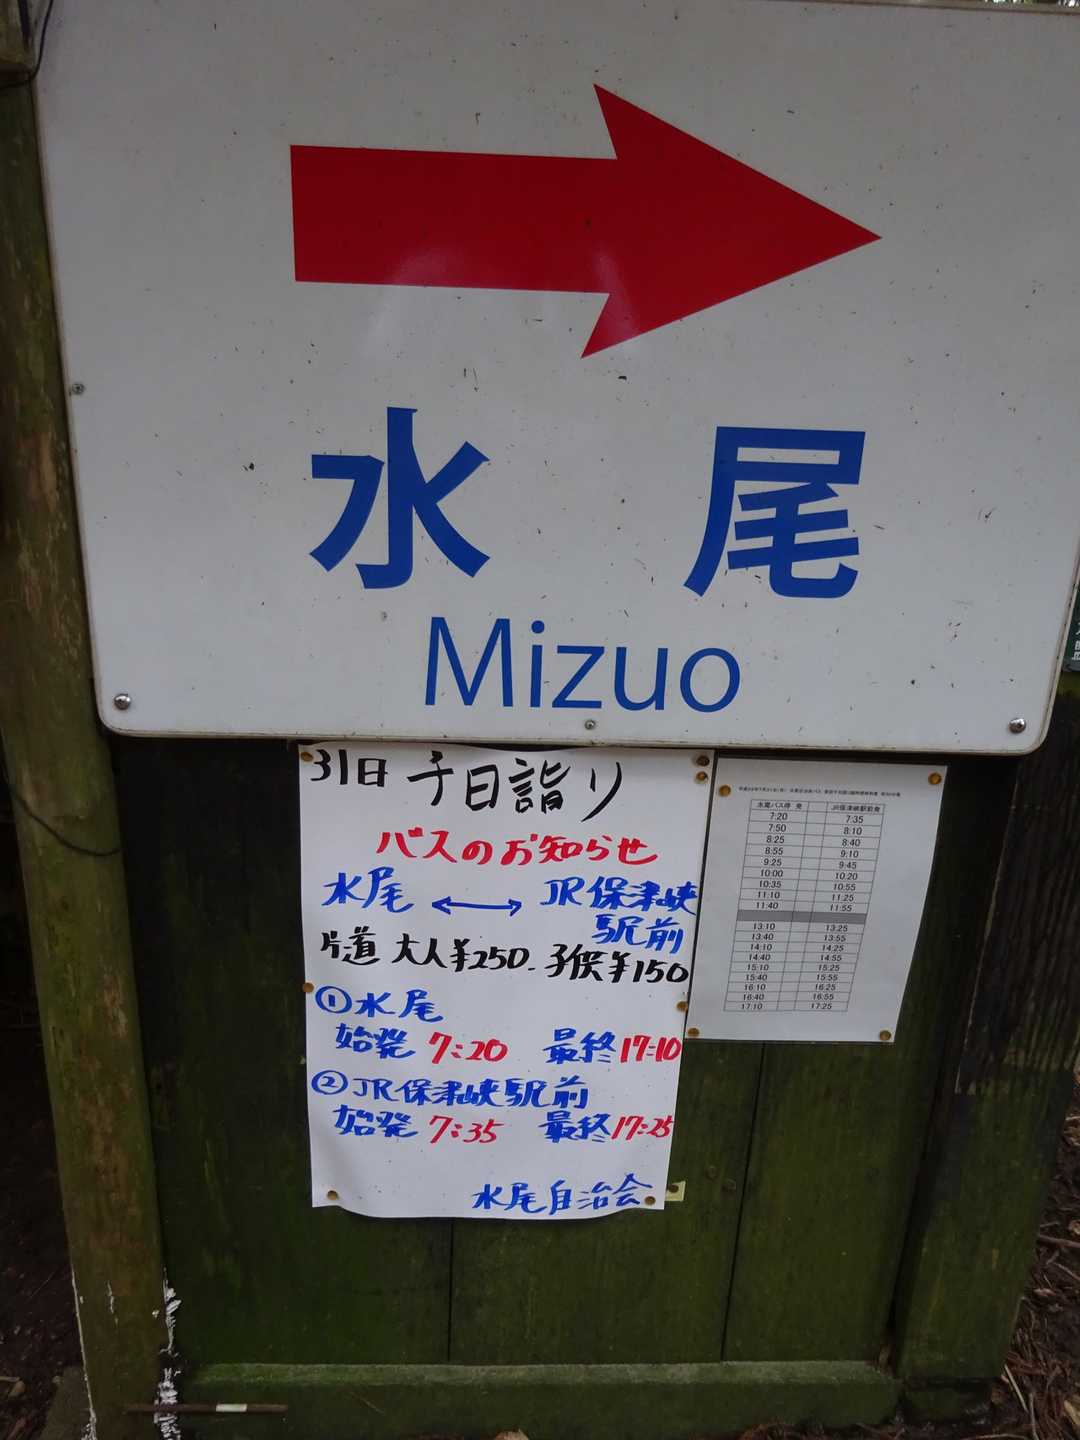 水尾
Mizuo
31日 千日詣り
バスのお知らせ
水尾 ↔ JR保津峡
駅前
片道 大人¥250. 子供¥150
①水尾
始発 7:20 最終17:10
②JR保津峡駅前
始発 7:35 最終17:25
水尾自治会
水尾バス停 発 JR保津峡駅前発
7:20 7:35
7:50 8:10
8:25 8:40
8:55 9:10
9:25 9:45
10:00 10:20
10:35 10:55
11:10 11:25
11:40 11:55
13:10 13:25
13:40 13:55
14:10 14:25
14:40 14:55
15:10 15:25
15:40 15:55
16:10 16:25
16:40 16:55
17:10 17:25